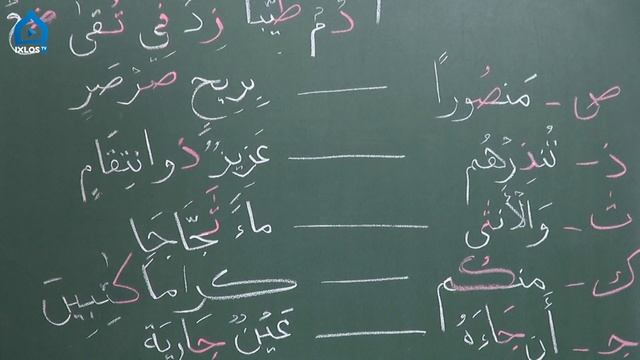 IXLOS TV
دُمْ طَيِّبًا زِدْ فِي تُقًى ضَ
ص - مَنصُورًا — بِرِيحٍ صَرْصَرٍ
ذ - تُنذِرْهُم — عَزِيزٌ ذُو انتِقَامٍ
ث - وَالْأُنثَى — مَاءً ثَجَّاجًا
ك - مِنكُم — كِرَامًا كَٰتِبِينَ
ج - أَن جَاءَهُ — عَيْنٌ جَارِيَةٌ